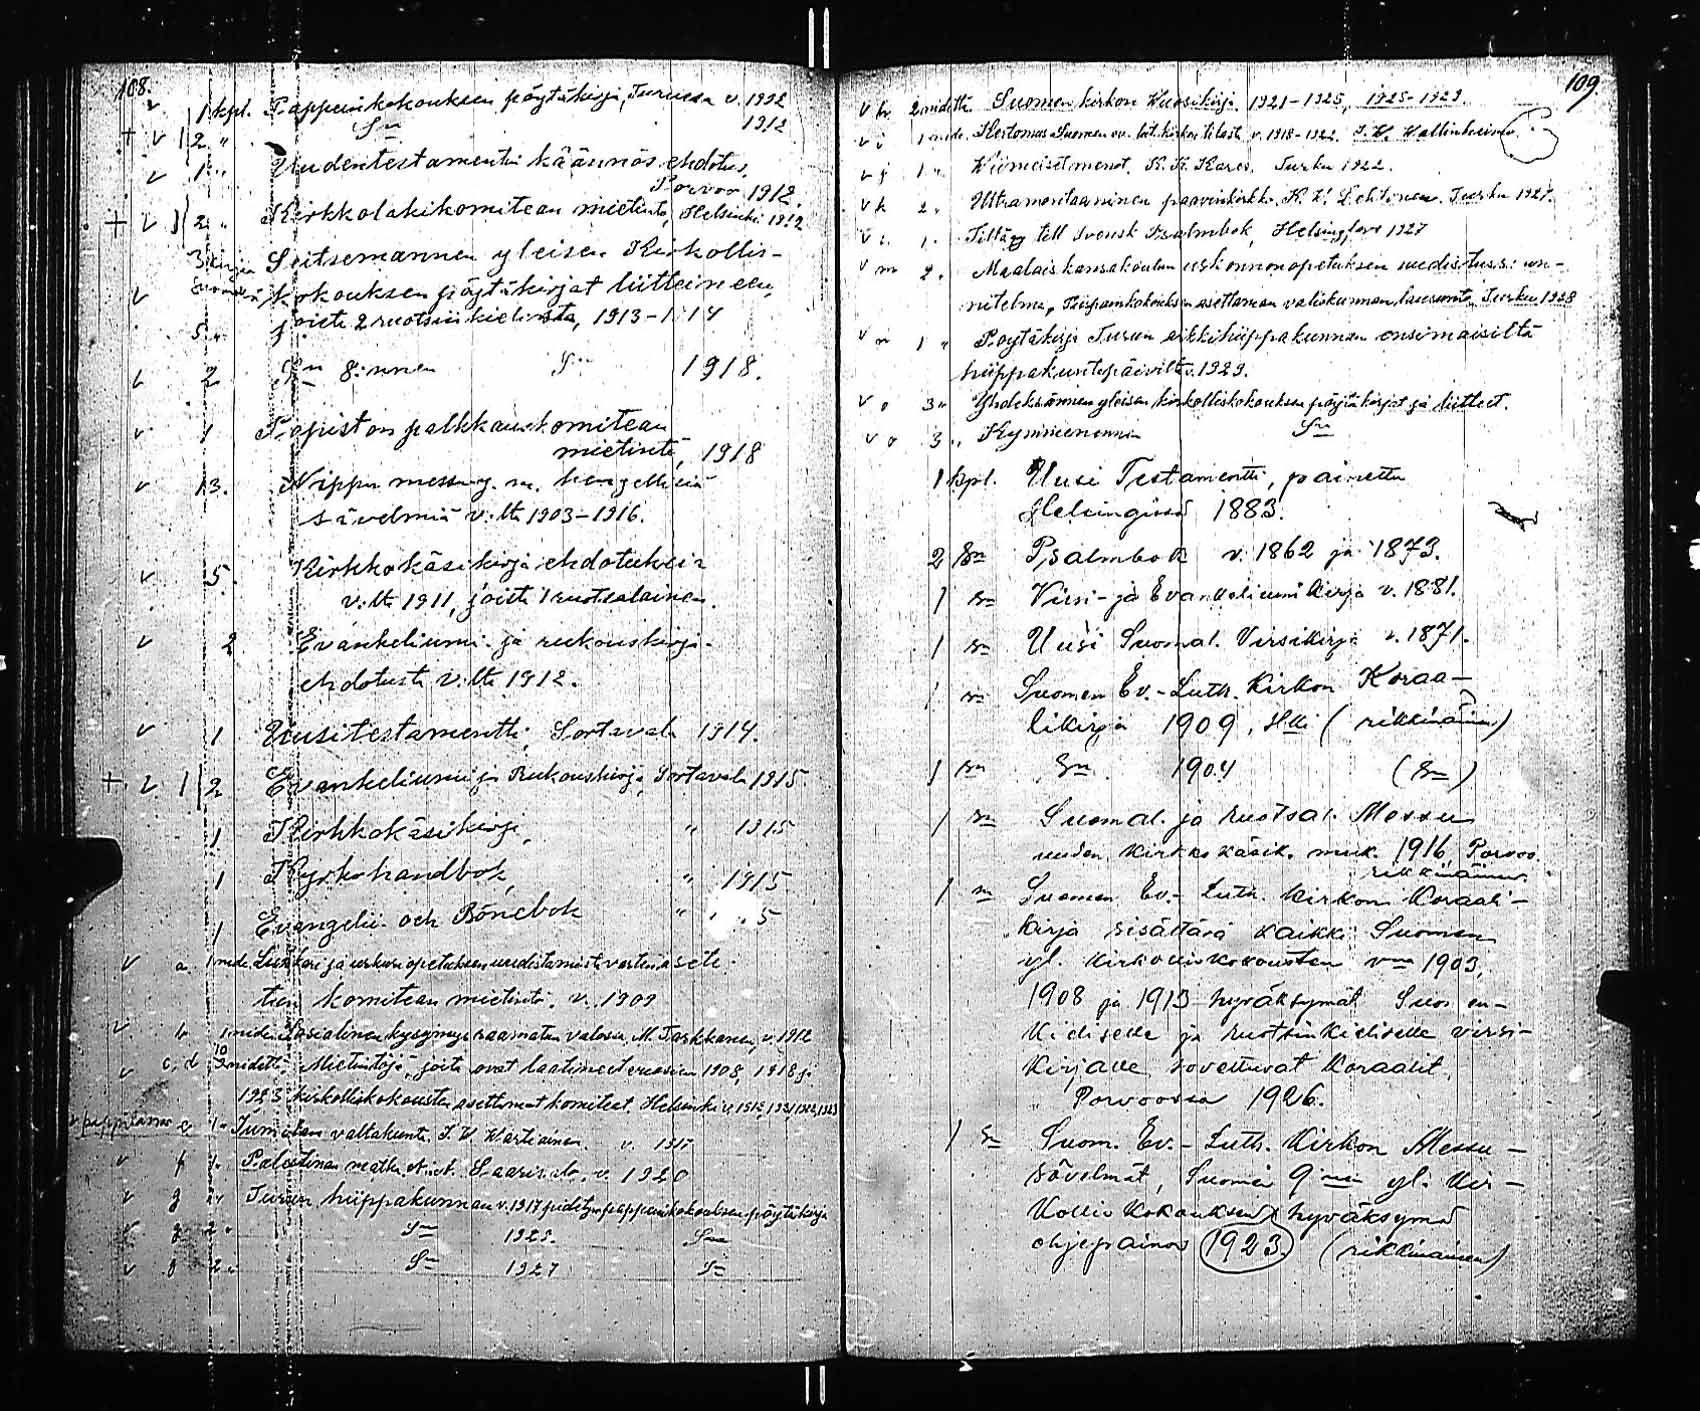 108.
v 1 kpl. Pappeinkokouksen pöytäkirja, Turussa v. 1992
+ v 1/2 " Sn 1912
v 1 " Uudentestamentin käännösehdotus,
Porvoo 1912.
+ v 1/2 " Kirkkolakikomitean mietintö, Helsinki 1912
3 kirjaa Seitsemännen yleisen Kirkollis-
v kokouksen pöytäkirjat liitteineen,
5 " joista 2 ruotsinkielistä, 1913-1914
v 2 Sn 8:nnen Sn 1918.
v 1 Papiston palkkauskomitean
mietintö, 1918
v 13. Nippu messu y. m. hengellisiä
sävelmiä v:lta 1903-1916.
v 5. Kirkkokäsikirjaehdotuksia
v:lta 1911, joista 1 ruotsalainen.
v 2 Evankeliumi- ja rukouskirja-
ehdotusta v:lta 1912.
v 1 Uusitestamentti, Sortavala 1914.
+ v 1/2 Evankeliumi ja Rukouskirja, Sortavala 1915.
1 Kirkkokäsikirja, " 1915
1 Kyrkohandbok, " 1915
1 Evangelii- och Bönebok " 5
v a 1 nide. Lukkari ja urkuriopetuksen uudistamista varten asete-
tun komitean mietintö. v. 1909
v b 1 nide. Sosialinen kysymys raamatun valossa, M. Tarkkanen, v. 1912
v c, d 10 nidettä Mietintöjä, joita ovat laatineet vuosien 1908, 1918 ja
1923 kirkolliskokousten asettamat komiteat. Helsinki
v pappilassa e 1 " Jumalan valtakunta. J. V. Wartiainen v. 1917
v f 1 " Palestinan matka. A. Saarisalo. v. 1920
v g 2 " Turun hiippakunnan v. 1917 pidetyn pappeinkokouksen pöytäkirja
v g 2 " Sn 1928. Sn
v g 2 " Sn 1927 Sn
109.
v h 2 nidettä Suomen kirkon Vuosikirja. 1921-1925, 1925-1929.
v i 1 nide. Kertomus Suomen ev. lut. kirkon tilasta v. 1918-1922. J. W. Wallinheimo.
v j 1 " Viimeiset menot. K. K. Kares. Turku 1922.
v k 2 " Ultramontaaninen paavinkirkko. K. V. Lehtonen. Turku 1927.
v l 1 " Tillägg till Svensk Psalmbok, Helsingfors 1927
v m 2 " Maalaiskansakoulun uskonnonopetuksen uudistussuun-
nitelma, Piispainkokouksen asettaman valiokunnan lausunto, Turku 1928
v n 1 " Pöytäkirja Turun arkkihiippakunnan ensimäisiltä
hiippakuntapäiviltä v. 1929.
v o 3 " Yhdeksännen yleisen kirkolliskokouksen pöytäkirjat ja liitteet.
v o 3 " Kymmenennen Sn
1 kpl. Uusi Testamentti, painettu
Helsingissä 1883.
2 Sn Psalmbok v. 1862 ja 1873.
1 Sn Virsi- ja Evankeliumikirja v. 1881.
1 Sn Uusi Suomal. Virsikirja v. 1871.
1 Sn Suomen Ev.-Luth. Kirkon Koraa-
likirja 1909, Hki (rikkinäinen)
1 Sn Sn 1904 (Sn)
1 Sn Suomal. ja ruotsal. Messu
uuden kirkkokäsik. muk. 1916, Porvoo.
rikkinäinen.
1 Sn Suomen Ev.-Luth. Kirkon Koraali-
kirja sisältävä kaikki Suomen
yl. kirkolliskokousten vna 1903,
1908 ja 1913 hyväksymät Suomen-
kieliselle ja ruotsinkieliselle virsi-
kirjalle sovelluvat koraalit.
Porvoossa 1926.
1 Sn Suom. Ev.-Luth. Kirkon Messu-
sävelmät, Suomen 9nnen yl. Kir-
kollis Kokouksen hyväksymä
ohjepainos 1923. (rikkinäinen)